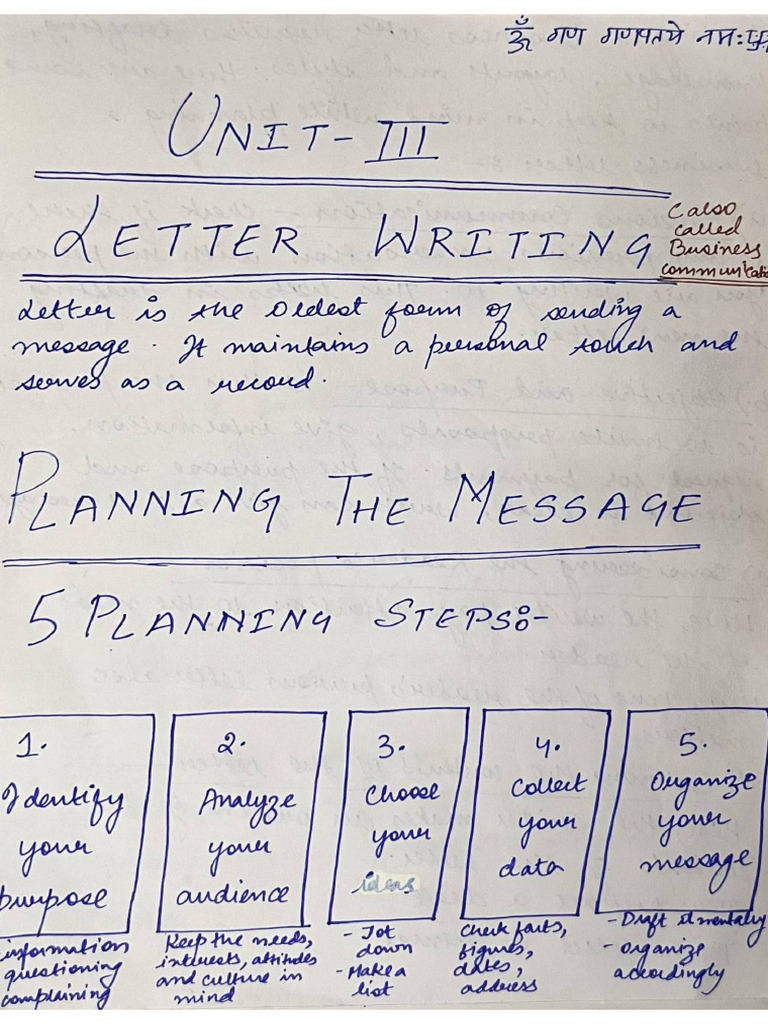 ॐ गण गणपतये नमः
UNIT-III
LETTER WRITING
(also
called
Business
communicatio
Letter is the oldest form of sending a
message. It maintains a personal touch and
serves as a record.
PLANNING THE MESSAGE
5 PLANNING STEPS:-
1.
Identify
your
purpose
information
questioning
complaining
2.
Analyze
your
audience
Keep the needs,
interests, attitudes
and culture in
mind
3.
Choose
your
ideas
- Jot
down
- Make a
list
4.
Collect
your
data
Check facts,
figures,
dates,
address
5.
Organize
your
message
- Draft it mentally
- organize
accordingly